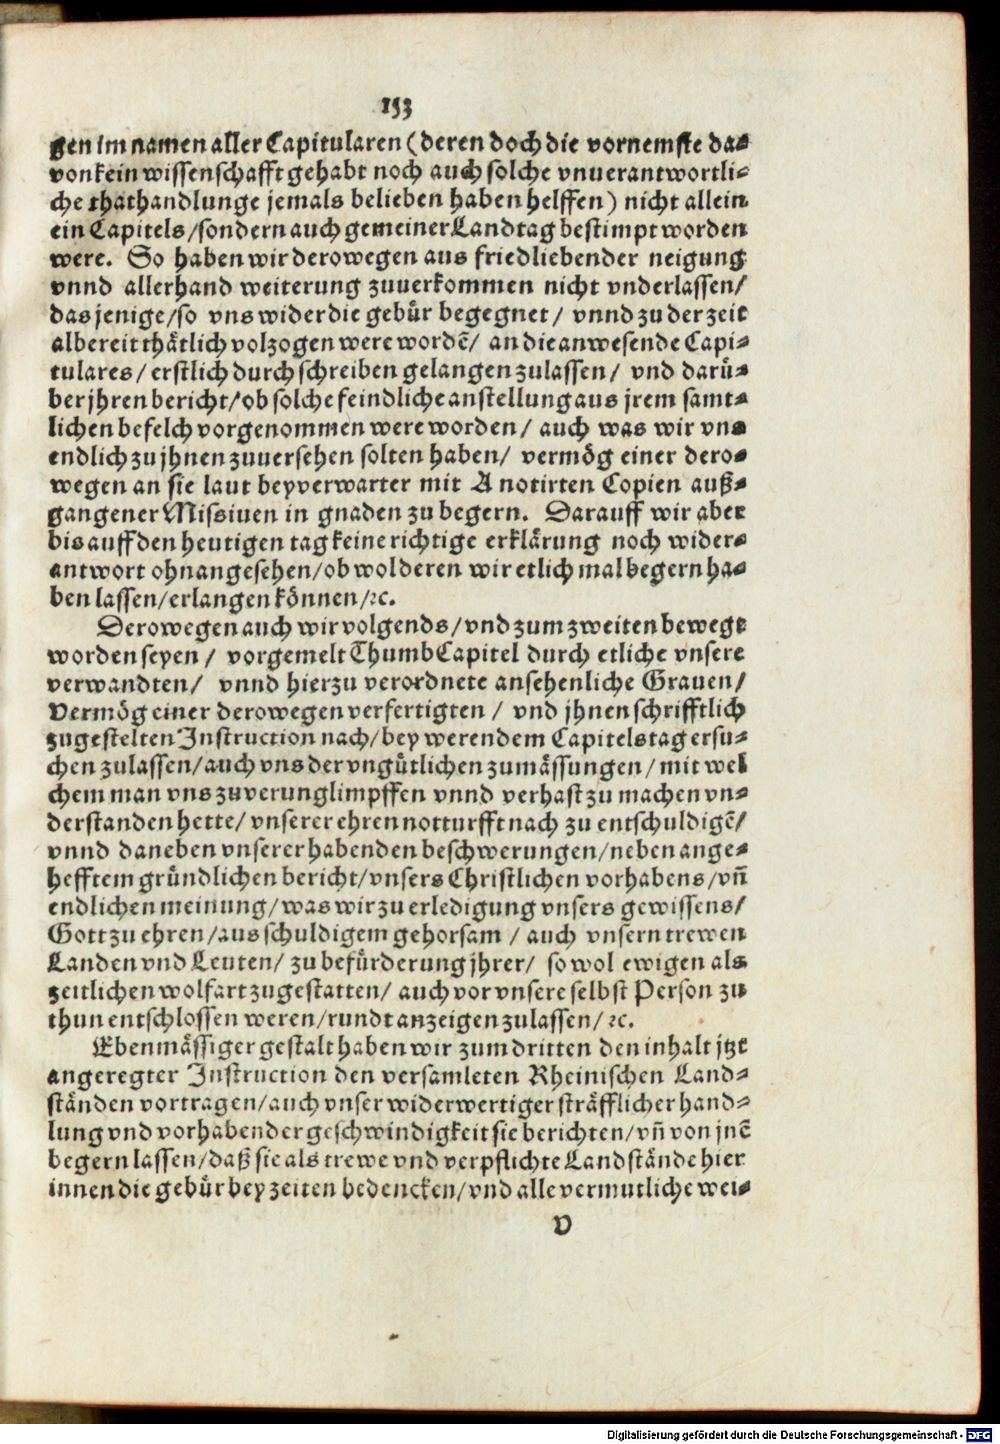 153
gen im namen aller Capitularen (deren doch die vornemste da-
von kein wissenschafft gehabt noch auch solche vnuerantwortli-
che thathandlunge jemals belieben haben helffen) nicht allein
ein Capitels/sondern auch gemeiner Landtag bestimpt worden
were. So haben wir derowegen aus friedliebender neigung
vnnd allerhand weiterung zuuerkommen nicht vnderlassen/
das jenige/so vns wider die gebür begegnet/ vnnd zu der zeit
albereit thätlich volzogen were wordē/ an die anwesende Capi-
tulares/erstlich durch schreiben gelangen zulassen/ vnd darü-
ber jhren bericht/ob solche feindliche anstellung aus jrem samt-
lichen befelch vorgenommen were worden/ auch was wir vns
endlich zu jhnen zuuersehen solten haben/ vermög einer dero-
wegen an sie laut beyverwarter mit A notirten Copien auß-
gangener Missiuen in gnaden zu begern. Darauff wir aber
bis auff den heutigen tag keine richtige erklärung noch wider-
antwort ohnangesehen/ob wol deren wir etlich mal begern ha-
ben lassen/erlangen können/ꝛc.
Derowegen auch wir volgends/vnd zum zweiten bewegt
worden seyen/ vorgemelt ThumbCapitel durch etliche vnsere
verwandten/ vnnd hierzu verordnete ansehenliche Grauen/
Vermög einer derowegen verfertigten/ vnd jhnen schrifftlich
zugestelten Instruction nach/bey werendem Capitelstag ersu-
chen zulassen/auch vns der vngütlichen zumässungen/mit wel
chem man vns zuverunglimpffen vnnd verhast zu machen vn-
derstanden hette/vnserer ehren notturfft nach zu entschuldigē/
vnnd daneben vnserer habenden beschwerungen/neben ange-
hefftem gründlichen bericht/vnsers Christlichen vorhabens/vn̄
endlichen meinung/was wir zu erledigung vnsers gewissens/
Gott zu ehren/aus schuldigem gehorsam/ auch vnsern trewen
Landen vnd Leuten/ zu befürderung jhrer/ so wol ewigen als
zeitlichen wolfart zugestatten/ auch vor vnsere selbst Person zu
thun entschlossen weren/rundt anzeigen zulassen/ꝛc.
Ebenmässiger gestalt haben wir zum dritten den inhalt jtzt
angeregter Instruction den versamleten Rheinischen Land-
ständen vortragen/auch vnser widerwertiger sträfflicher hand-
lung vnd vorhabender geschwindigkeit sie berichten/vn̄ von jnē
begern lassen/daß sie als trewe vnd verpflichte Landstände hier
innen die gebür bey zeiten bedencken/vnd alle vermutliche wei-
V
Digitalisierung gefördert durch die Deutsche Forschungsgemeinschaft - DFG